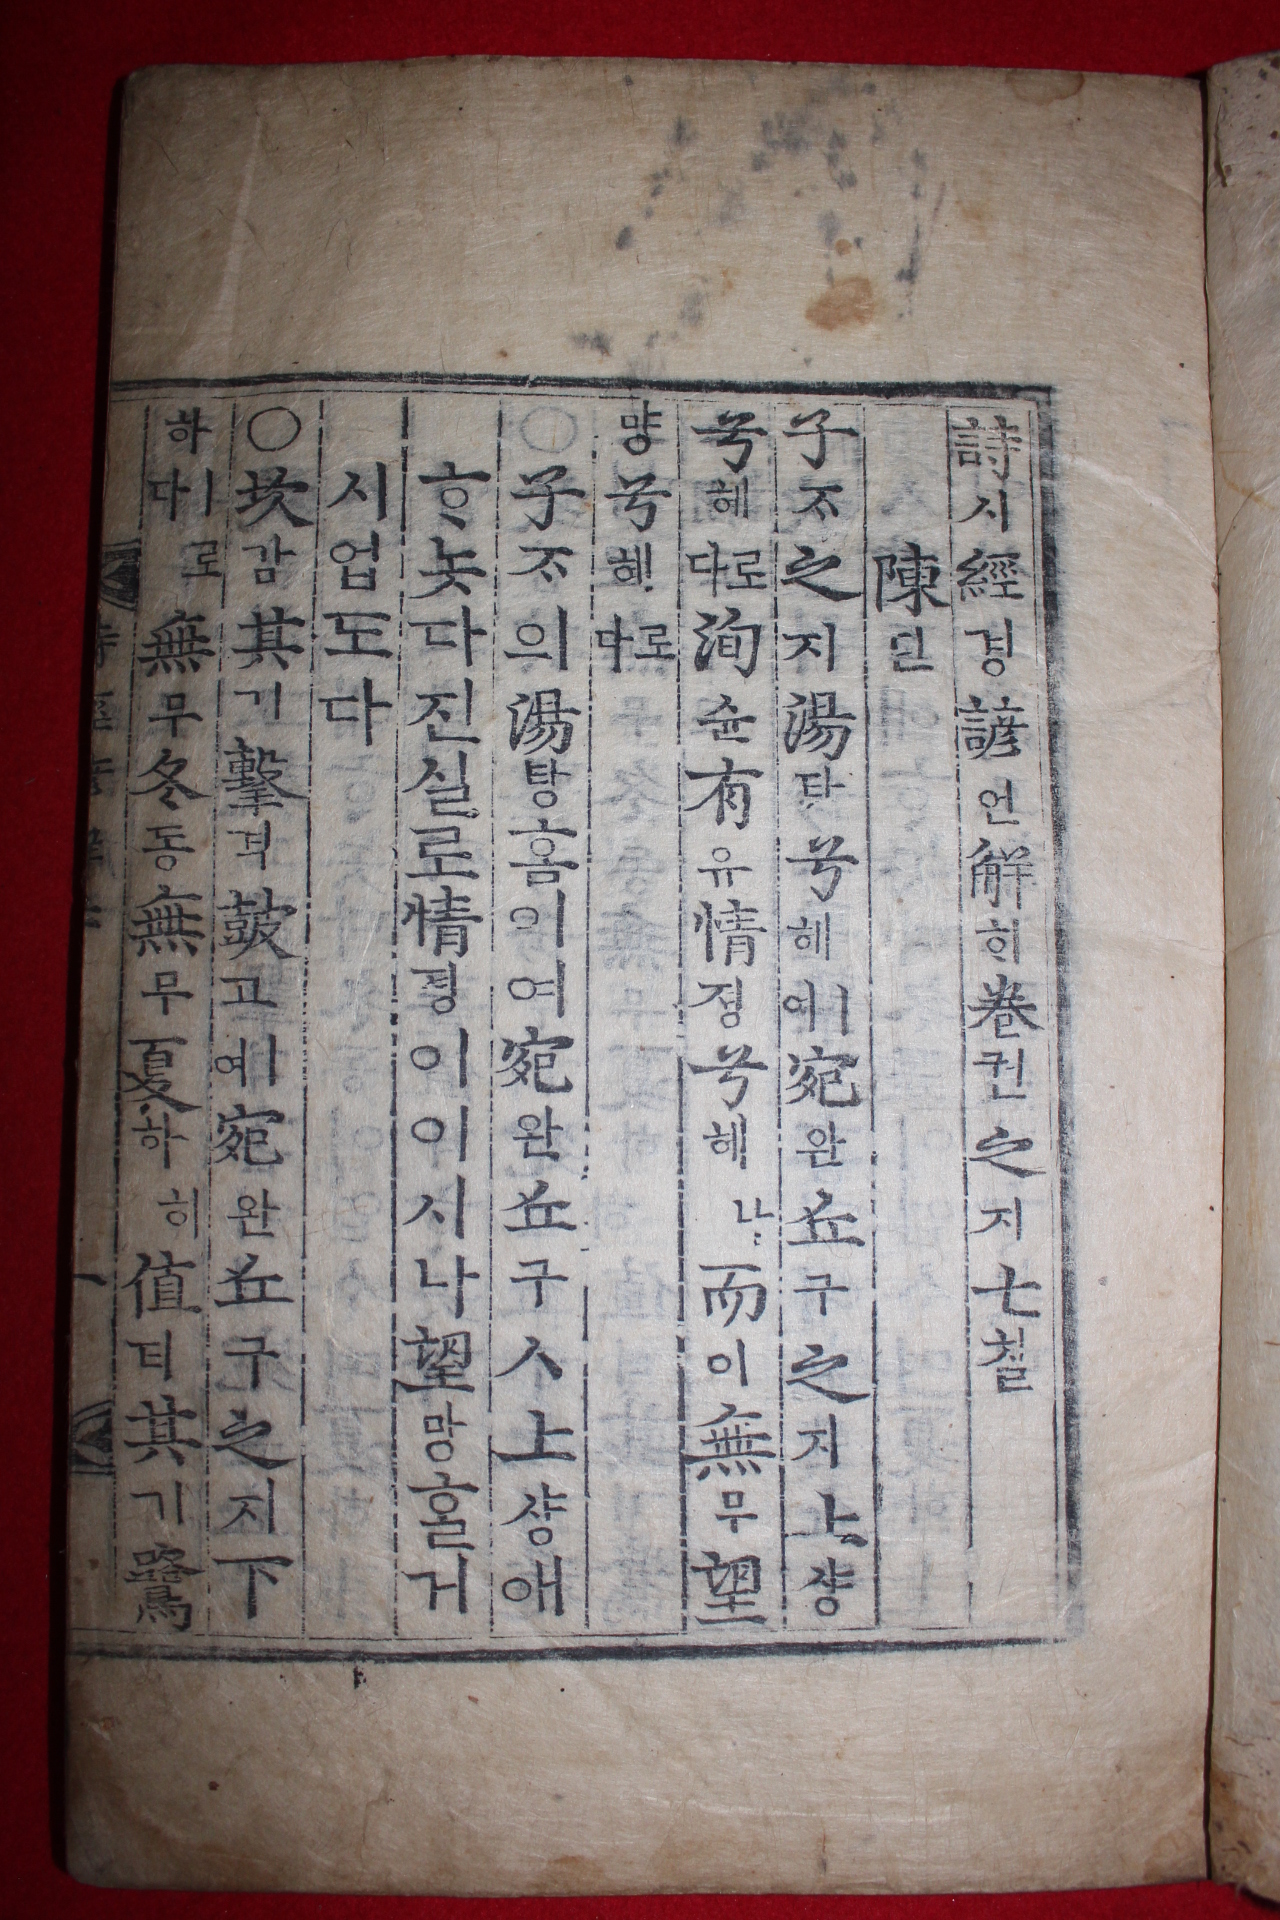 詩시經경諺언解ᄒᆡ卷권之지七칠
陳딘
子ᄌᆞ之지湯탕兮혜ㅣ여宛완丘구之지上샹
兮혜로다洵슌有유情졍兮혜나而이無무望
망兮혜로다
○子ᄌᆞ의湯탕홈이여宛완丘구ㅅ上샹애
ᄒᆞ놋다진실로情졍이이시나望망홀거
시업도다
○坎감其기擊격鼓고ㅣ예宛완丘구之지下
하ㅣ로다無무冬동無무夏하히値티其기鷺
詩經諺解 七 一